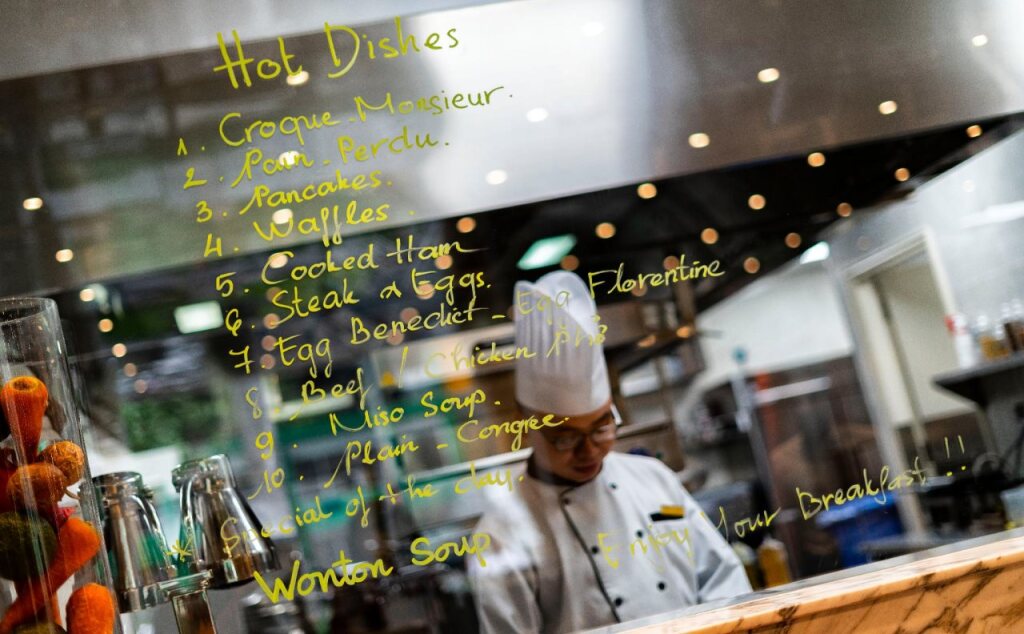 Hot Dishes
1. Croque-Monsieur.
2. Pain-Perdu.
3. Pancakes.
4. Waffles.
5. Cooked Ham
6. Steak & Eggs.
7. Egg Benedict - Egg Florentine
8. Beef / Chicken Phở
9. Miso Soup.
10. Plain - Congree.
* Special of the day.
Wonton Soup
Enjoy Your Breakfast !!